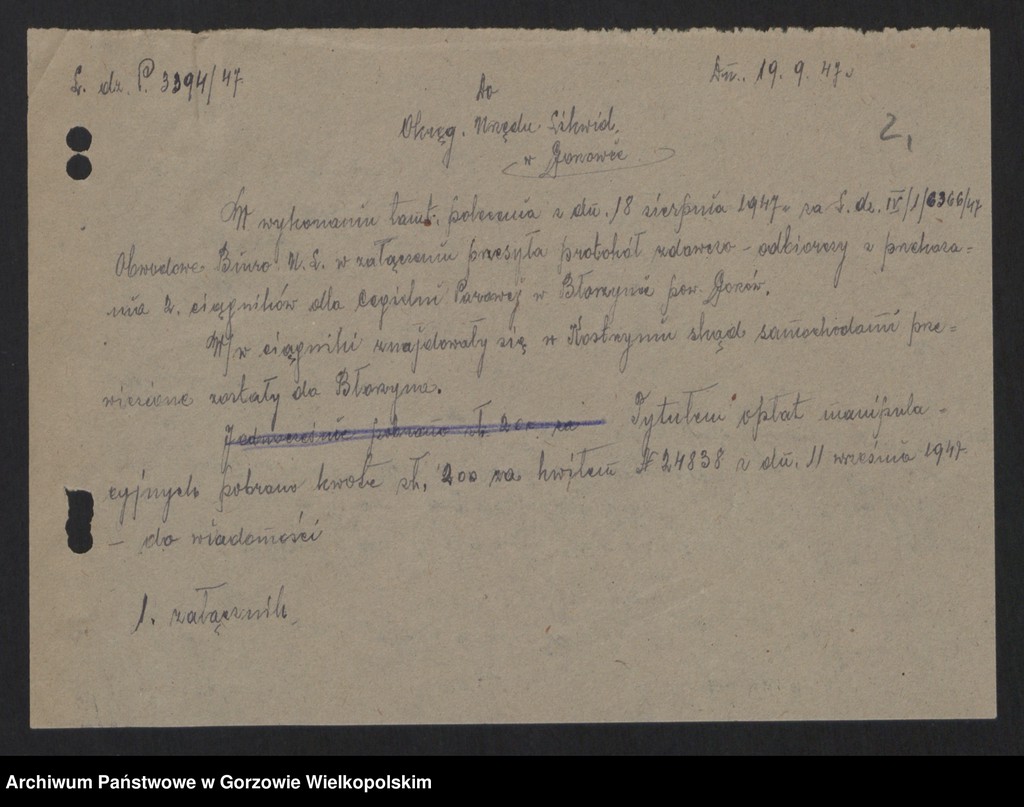 L. dz. P. 3394/47
Dn. 19. 9. 47.
Do
Okręg. Urzędu Likwid.
w
2,
W wykonaniu tamt. polecenia z dn. 18 sierpnia 1947 za L. dz. IV/1/6366/47
Obwodowe Biuro U. L. w załączeniu przesyła protokół zdawczo-odbiorczy z przekaza-
nia 2. ciągników dla Cegielni Parowej w pow.
W/w ciągniki znajdowały się w Kostrzyniu skąd samochodami prze=
wiezione zostały do
Jednocześnie pobrano zł. 200 za Tytułem opłat manipula-
cyjnych pobrano kwotę zł. 200 za kwitem N 24838 z dn. 11 września 1947
- do wiadomości
1. załącznik
Archiwum Państwowe w Gorzowie Wielkopolskim